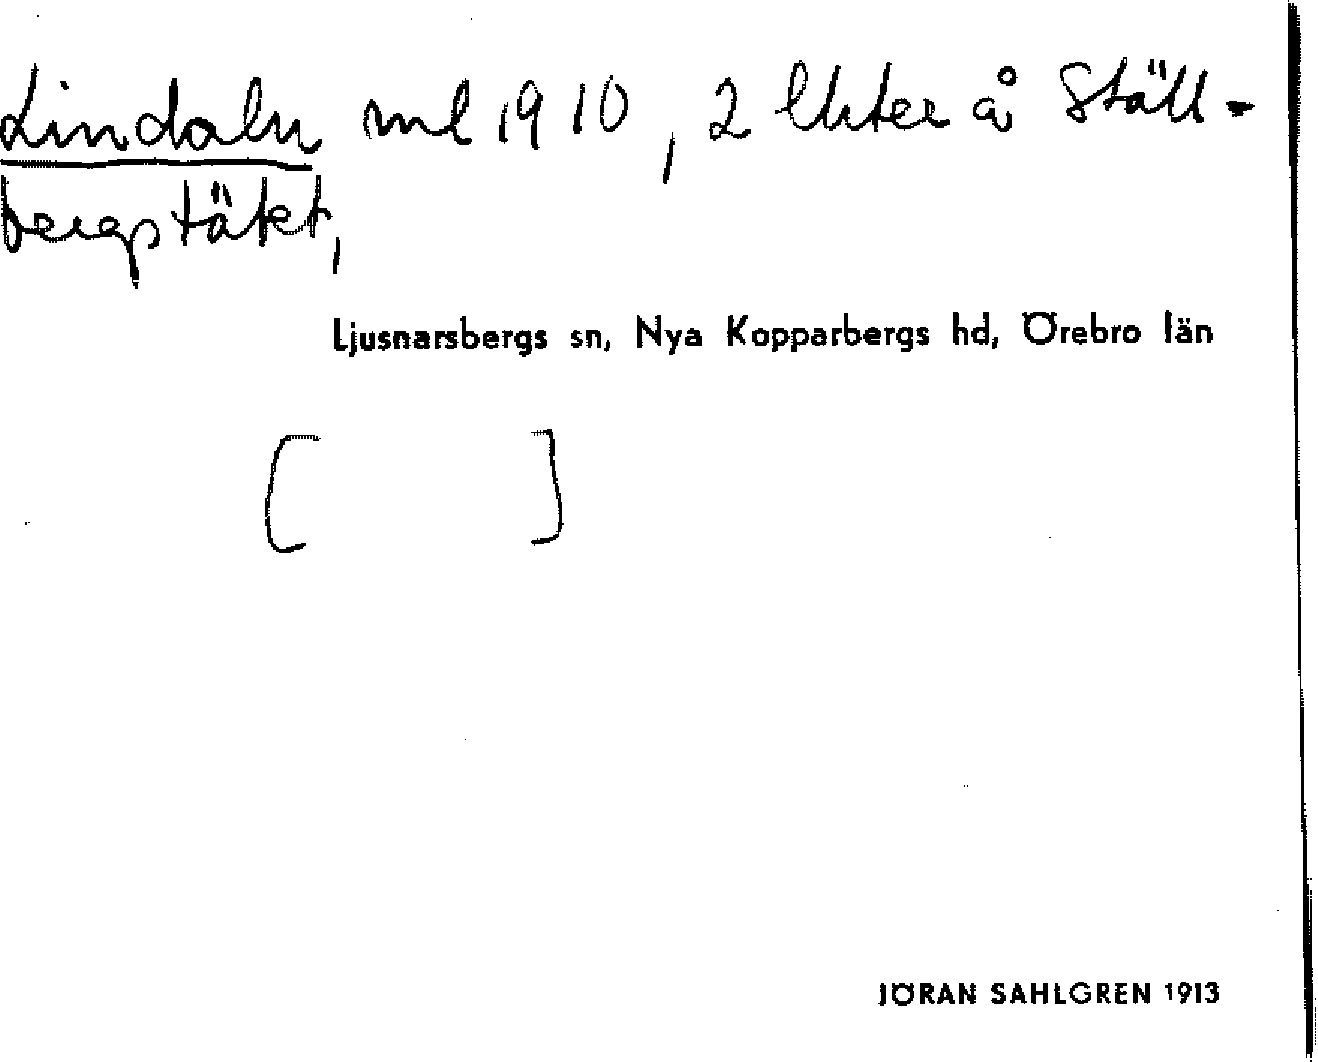 Lindalen ml 1910, 2 lhter å Ställ-
bergstäkt,
Ljusnarsbergs sn, Nya Kopparbergs hd, Örebro län
[ ]
JÖRAN SAHLGREN 1913